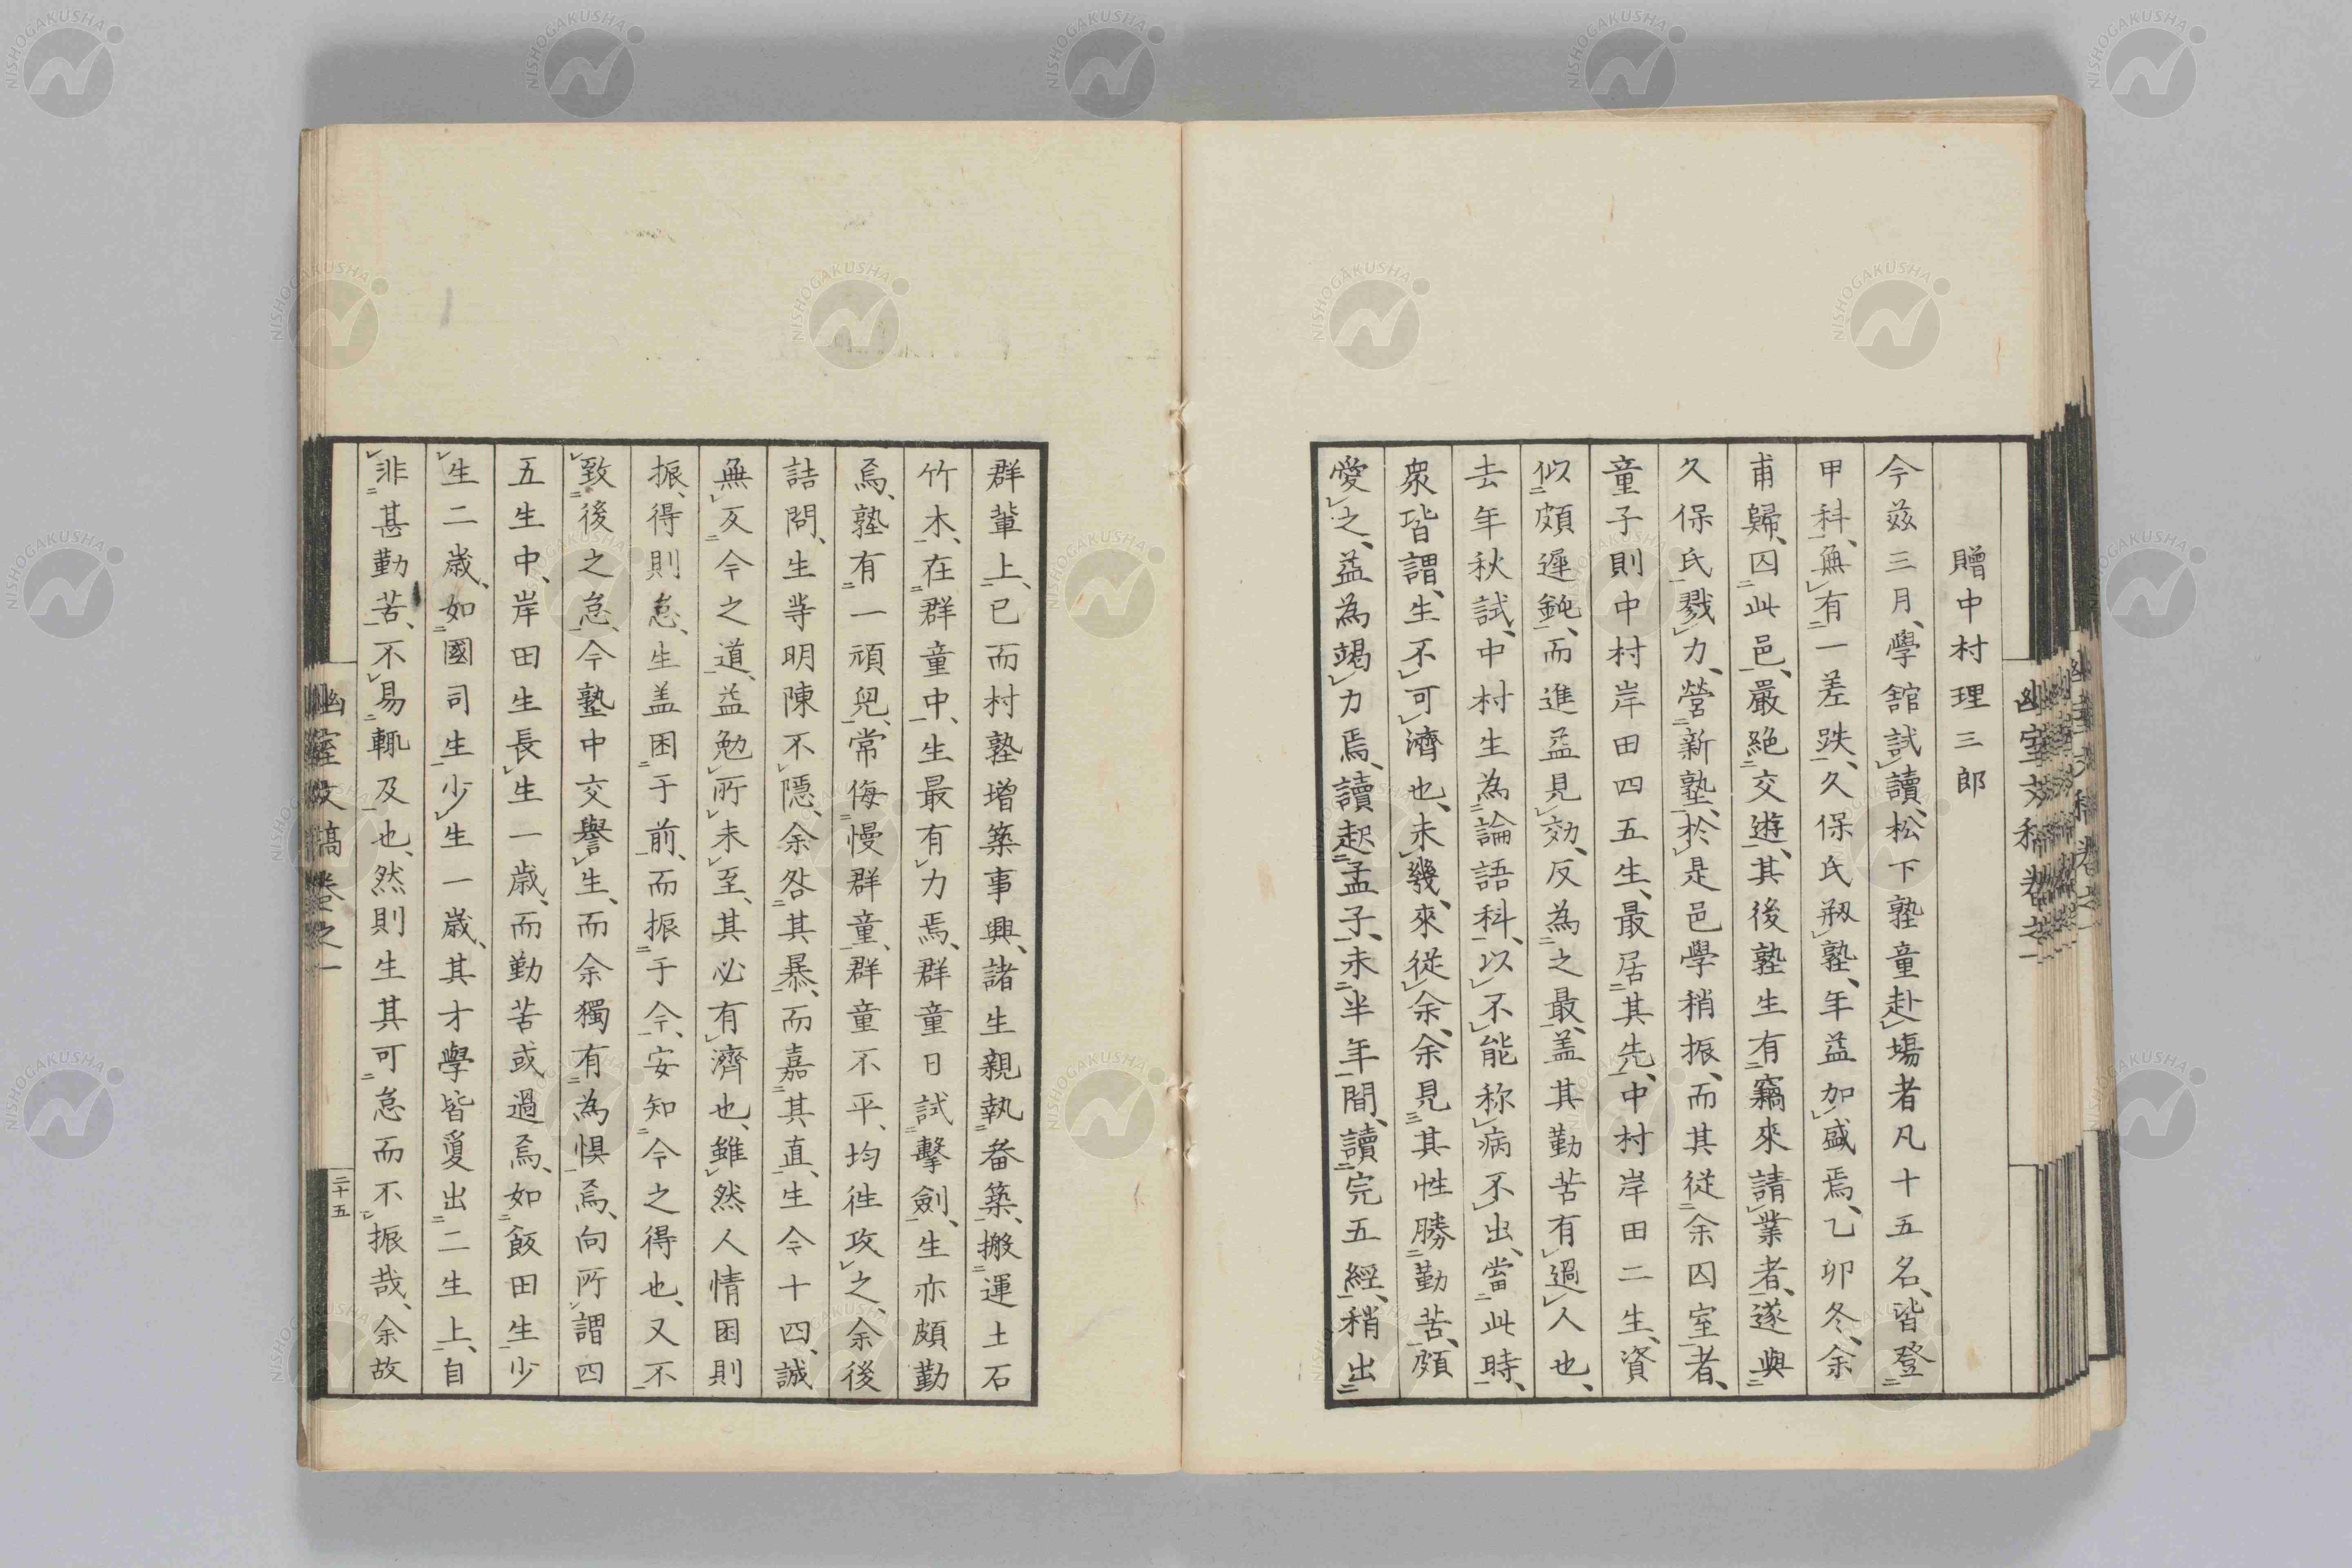 贈中村理三郎
今茲三月、學舘試讀、松下塾童赴場者凡十五名、皆登
甲科、無有一差跌、久保氏剏塾、年益加盛焉、乙卯冬、余
甫歸、囚此邑、嚴絶交遊、其後塾生有竊來請業者、遂與
久保氏戮力、營新塾、於是邑學稍振、而其従余囚室者、
童子則中村岸田四五生、最居其先、中村岸田二生、資
似頗遲鈍、而進益見効、反為之最、盖其勤苦有過人也、
去年秋試、中村生為論語科、以不能称病不出、當此時、
衆皆謂、生不可濟也、未幾、來従余、余見其性勝勤苦、頗
愛之、益為竭力焉、讀起孟子、未半年間、讀完五經、稍出
群輩上、已而村塾増築事興、諸生親執畚築、搬運土石
竹木、在群童中、生最有力焉、群童日試擊劍、生亦頗勤
焉、塾有一頑兒、常侮慢群童、群童不平、均徃攻之、余後
詰問、生等明陳不隱、余咎其暴、而嘉其直、生今十四、誠
無反今之道、益勉所未至、其必有濟也、雖然人情困則
振、得則怠、生盖困于前、而振于今、安知今之得也、又不
致後之怠、今塾中交譽生、而余獨有為惧焉、向所謂四
五生中、岸田生長生一歳、而勤苦或過焉、如飯田生少
生二歳、如國司生少生一歳、其才學皆夐出二生上、自
非甚勤苦、不易輒及也、然則生其可怠而不振哉、余故
幽室文稿卷之一
二十五